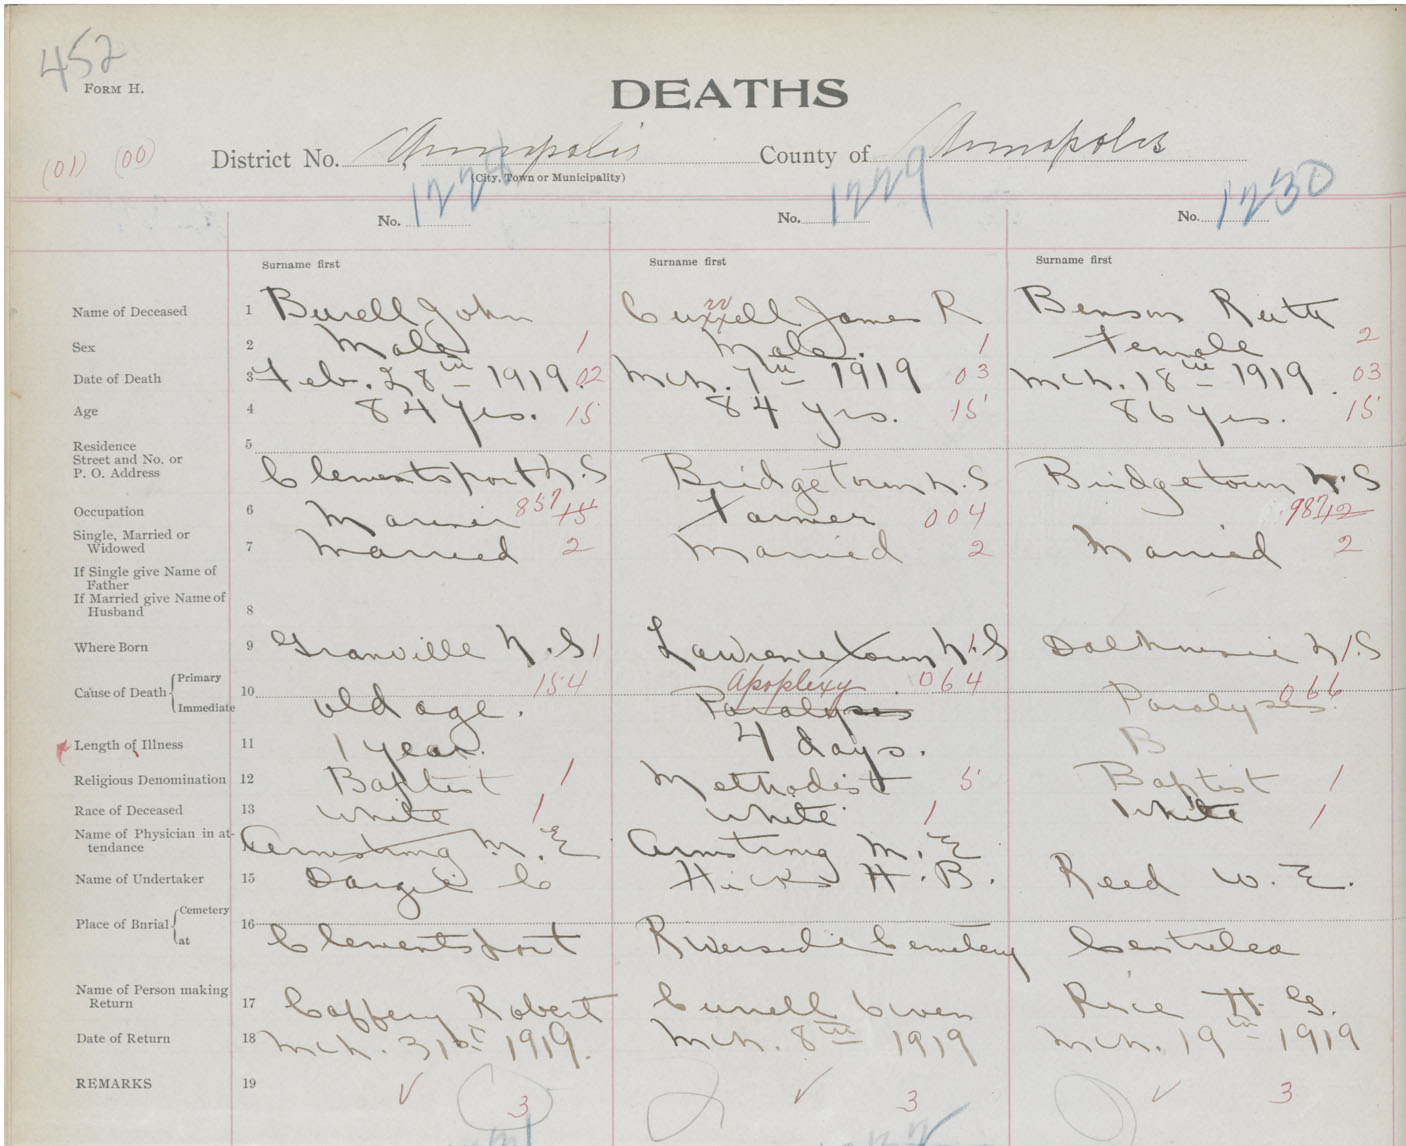 452
FORM H.
DEATHS
(01) (00) District No. Annapolis County of Annapolis
(City, Town or Municipality)
No. 1228 No. 1229 No. 1230
Surname first Surname first Surname first
Name of Deceased 1 Burell John Currell James R Benson Ruth
rr
Sex 2 Male 1 Male. 1 Female 2
Date of Death 3 Feb. 28th 1919 02 Mch. 7th 1919 03 Mch. 18th 1919. 03
Age 4 84 yrs. 15 84 yrs. 15 86 yrs. 15
Residence 5
Street and No. or
P. O. Address Clementsport N.S Bridgetown N.S Bridgetown N.S
Occupation 6 Mariner 857 15 Farmer 004 987 42
Single, Married or
Widowed 7 Married 2 Married 2 Married 2
If Single give Name of
Father
If Married give Name of
Husband 8
Where Born 9 Granville N.S 1 Lawrencetown N.S 1 Dalhousie N.S 1
Cause of Death Primary 10 154 Apoplexy 064 066
Immediate old age. Paralysis Paralysis.
Length of Illness 11 1 year. 4 days. B
Religious Denomination 12 Baptist 1 Methodist 5 Baptist 1
Race of Deceased 13 White 1 White 1 White 1
Name of Physician in at-
tendance Armstrong M. E Armstrong M. E
Name of Undertaker 15 Dargie C Hicks H. B. Reed W. E.
Place of Burial Cemetery 16
at Clementsport Riverside Cemetery Centrelea
Name of Person making
Return 17 Caffery Robert Currell Owen Rice H. G.
Date of Return 18 Mch. 31st 1919. Mch. 8th 1919 Mch. 19th 1919
REMARKS 19 ✓ 3 ✓ 3 ✓ 3